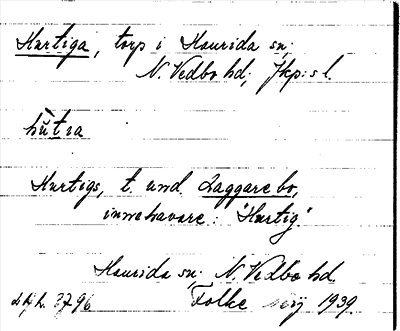 Hurtiga, torp i Haurida sn;
N. Vedbo hd; Jkp:s l.
hùtra
Hurtigs, t. und. Laggarebo,
innehavare: "Hurtig."
Haurida sn; N. Vedbo hd
3796 Folke 1939.